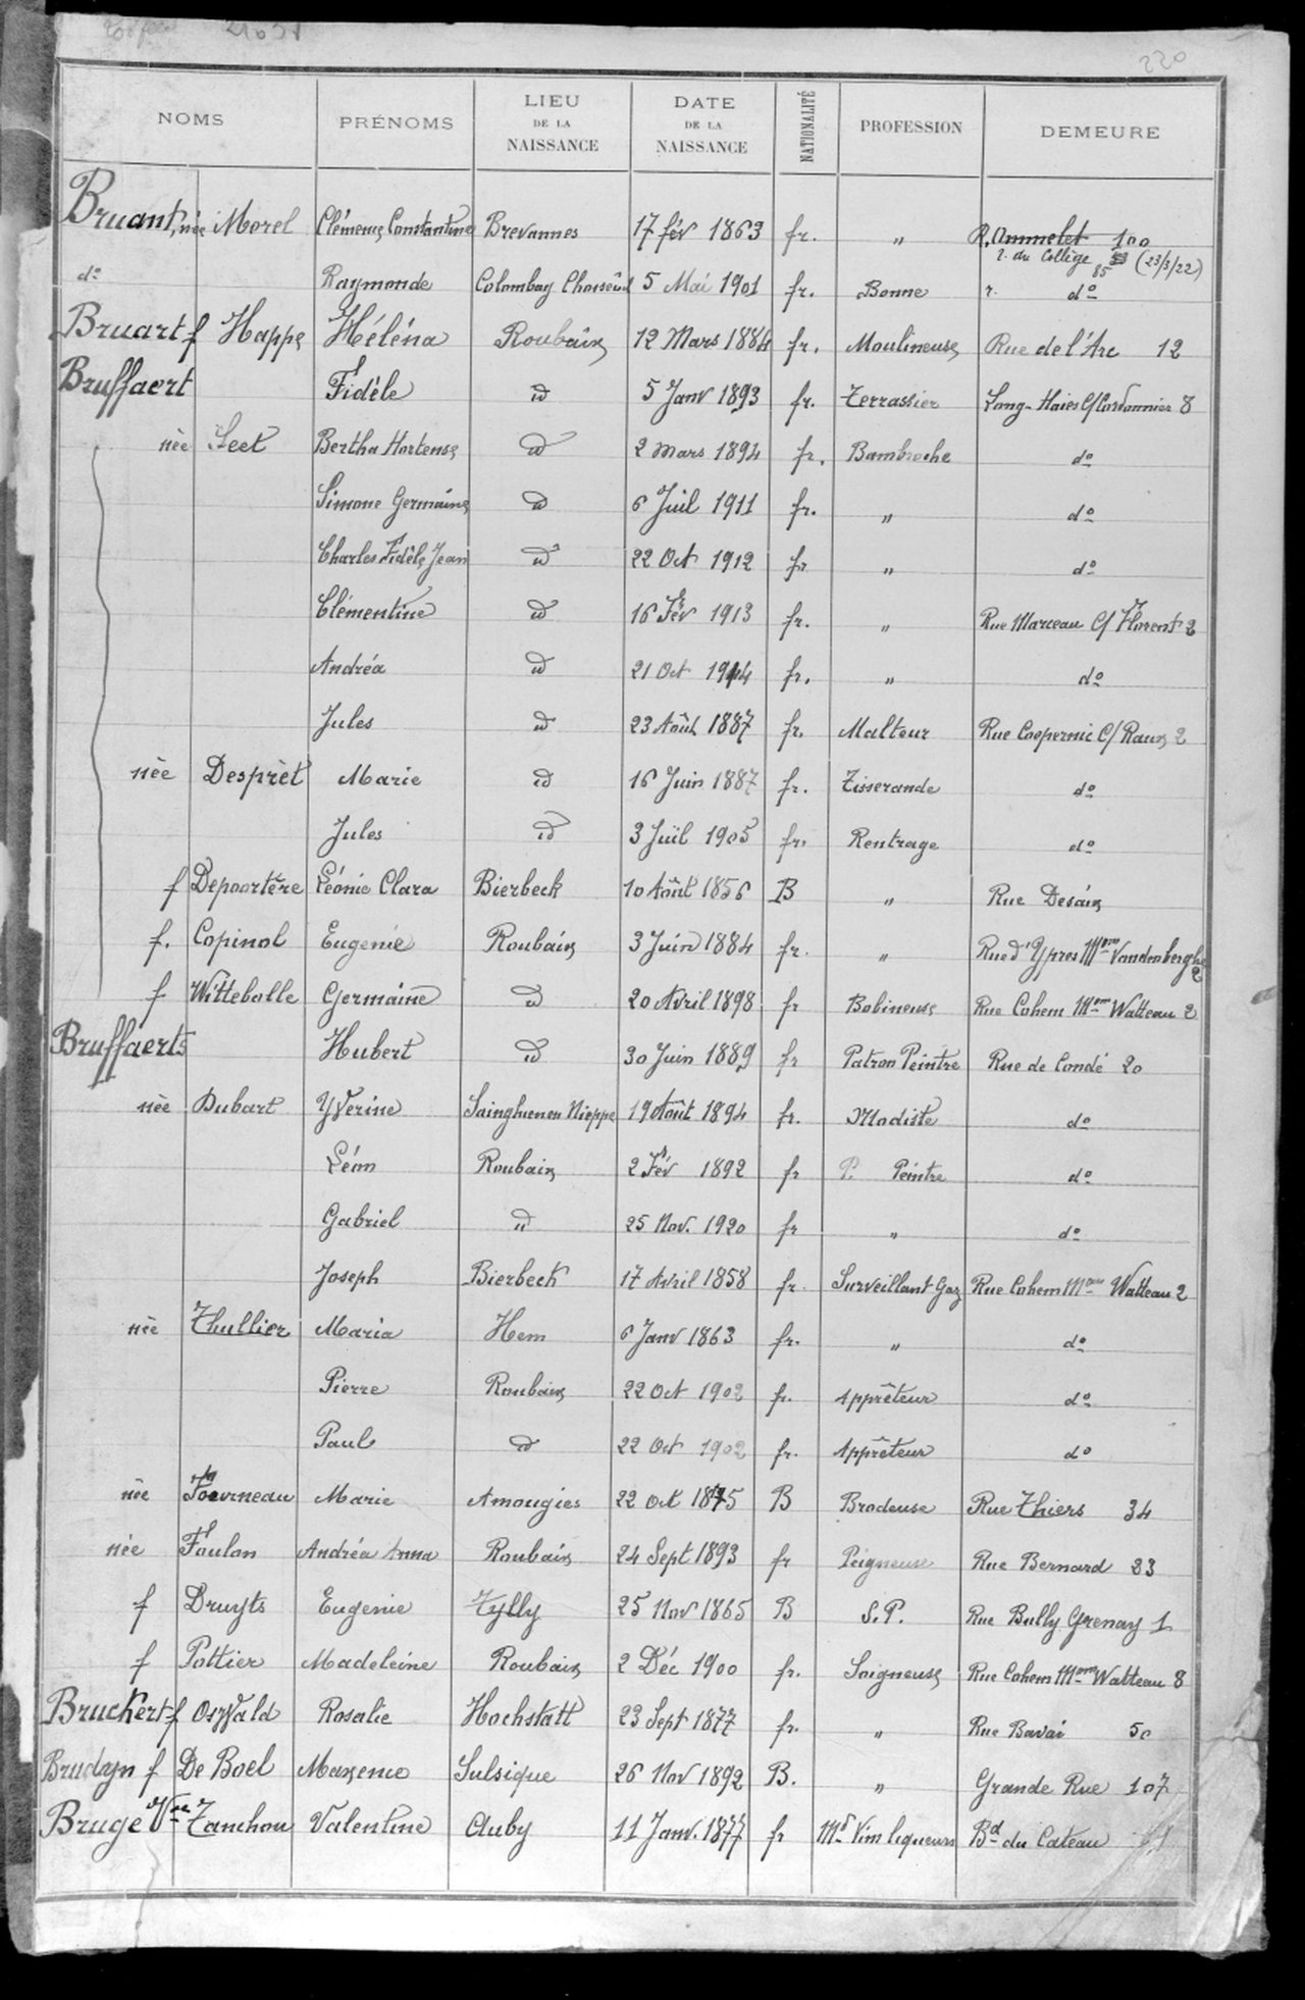 220
NOMS PRÉNOMS LIEU DE LA NAISSANCE DATE DE LA NAISSANCE NATIONALITÉ PROFESSION DEMEURE
Bruant, née Morel Clémence Constantine Brevannes 17 fév 1863 fr. " R. Ammelet 100
r. du Collège 85 (23/3/22)
do Raymonde Colombay Choiseul 5 Mai 1901 fr. Bonne r. do
Bruart f Happe Héléna Roubaix 12 Mars 1884 fr. Moulineuse Rue de l'Arc 12
Bruffaert Fidèle id 5 Janv 1893 fr. Terrassier Long-Haies C/Cordonnier 8
née Seet Bertha Hortense id 2 Mars 1894 fr. Bambroche do
Simone Germaine id 6 Juil 1911 fr. " do
Charles Fidèle Jean id 22 Oct 1912 fr " do
Clémentine id 16 Fév 1913 fr. " Rue Marceau C/ Florent 2
Andréa id 21 Oct 1914 fr. " do
Jules id 23 Août 1887 fr. Malteur Rue Copernic C/ Raux 2
née Desprèt Marie id 16 Juin 1887 fr. Tisserande do
Jules id 3 Juil 1905 fr. Rentrage do
f Depoortère Léonie Clara Bierbeck 10 Août 1856 B " Rue Desaix
f. Copinol Eugenie Roubaix 3 Juin 1884 fr. " Rue d'Ypres Mon Vandenberghe 2
f Wittebolle Germaine id 20 Avril 1898 fr Bobineuse Rue Cohem Mon Watteau 2
Bruffaerts Hubert id 30 Juin 1889 fr Patron Peintre Rue de Condé 20
née Dubart Yverine Sainghuen en Nieppe 19 Août 1894 fr. Modiste do
Léon Roubaix 2 Fév 1892 fr P. Peintre do
Gabriel id 25 Nov. 1920 fr " do
Joseph Bierbeck 17 Avril 1858 fr. Surveillant Gaz Rue Cohem Mon Watteau 2
née Thullier Maria Hem 6 Janv 1863 fr. " do
Pierre Roubaix 22 Oct 1902 fr. Apprêteur do
Paul id 22 Oct 1902 fr. Apprêteur do
née Tourneau Marie Amougies 22 Oct 1875 B Brodeuse Rue Thiers 34
née Foulon Andréa Anna Roubaix 24 Sept 1893 fr Peigneuse Rue Bernard 23
f Druyts Eugenie Tylly 25 Nov 1865 B S.P. Rue Bully Grenay 1
f Pottier Madeleine Roubaix 2 Déc 1900 fr. Soigneuse Rue Cohem Mon Watteau 8
Bruckert f Oswald Rosalie Hochstatt 23 Sept 1877 fr. " Rue Bavai 50
Brudyn f De Boel Maxence Sulsique 26 Nov 1892 B. " Grande Rue 107
Bruge Vve Tanchon Valentine Auby 11 Janv. 1877 fr Md Vins liqueurs Bd du Cateau